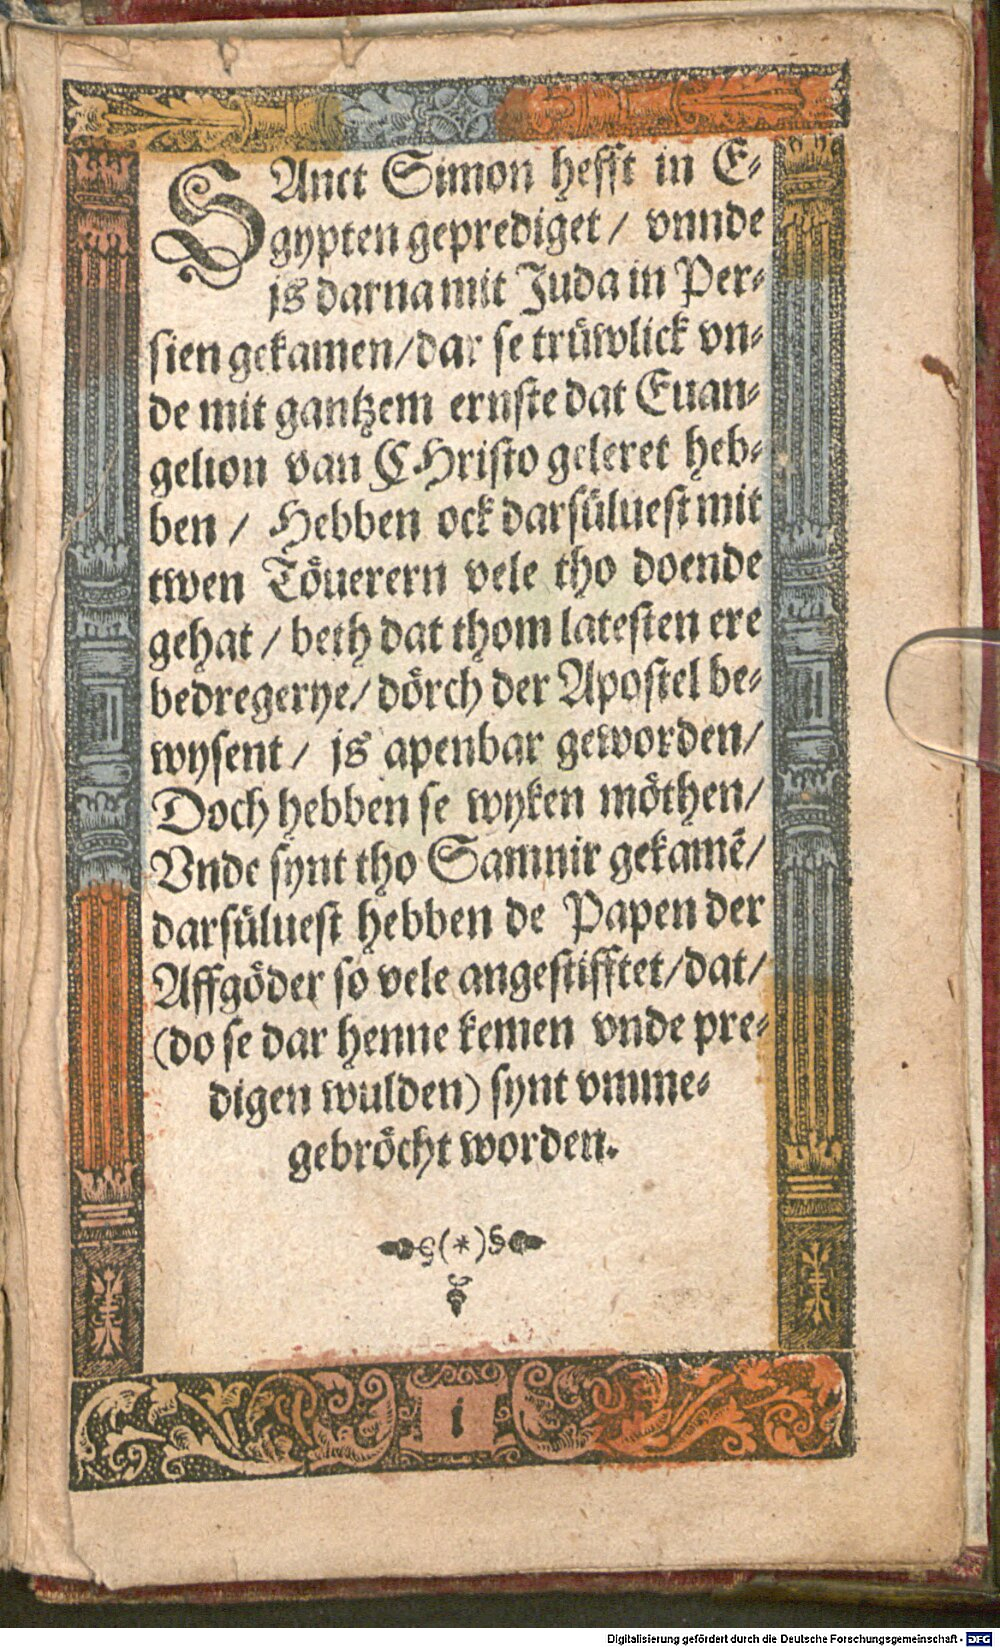 SAnct Simon hefft in E⸗
gypten geprediget / vnnde
js darna mit Juda in Per⸗
sien gekamen/dar se trüwlick vn⸗
de mit gantzem ernste dat Euan⸗
gelion van CHristo geleret heb⸗
ben / Hebben ock darsüluest mit
twen Töuerern vele tho doende
gehat / beth dat thom latesten ere
bedregerye/ dörch der Apostel be⸗
wysent / js apenbar geworden/
Doch hebben se wyken möthen/
Vnde synt tho Samnir gekamē/
darsüluest hebben de Papen der
Affgöder so vele angestifftet/dat/
(do se dar henne kemen vnde pre⸗
digen wulden) synt vmme⸗
gebröcht worden.
(*)
i
Digitalisierung gefördert durch die Deutsche Forschungsgemeinschaft - DFG